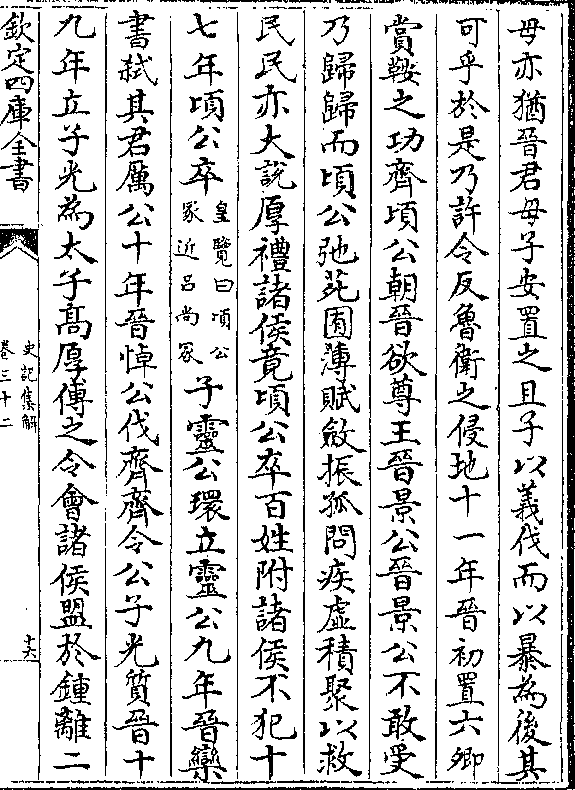 母亦猶晉君母子安置之且子以義伐而以暴為後其
可乎於是乃許令反魯衛之侵地十一年晉初置六卿
賞鞍之功齊頃公朝晉欲尊王晉景公晉景公不敢受
乃歸歸而頃公弛苑囿薄賦斂振孤問疾虛積聚以救
民民亦大說厚禮諸侯竟頃公卒百姓附諸侯不犯十
七年頃公卒皇覽曰頃公冢近呂尚冢子靈公環立靈公九年晉欒
書弑其君厲公十年晉悼公伐齊齊令公子光質晉十
九年立子光為太子髙厚傅之令會諸侯盟於鍾離二
欽定四庫全書
史記集解
卷三十二
十六